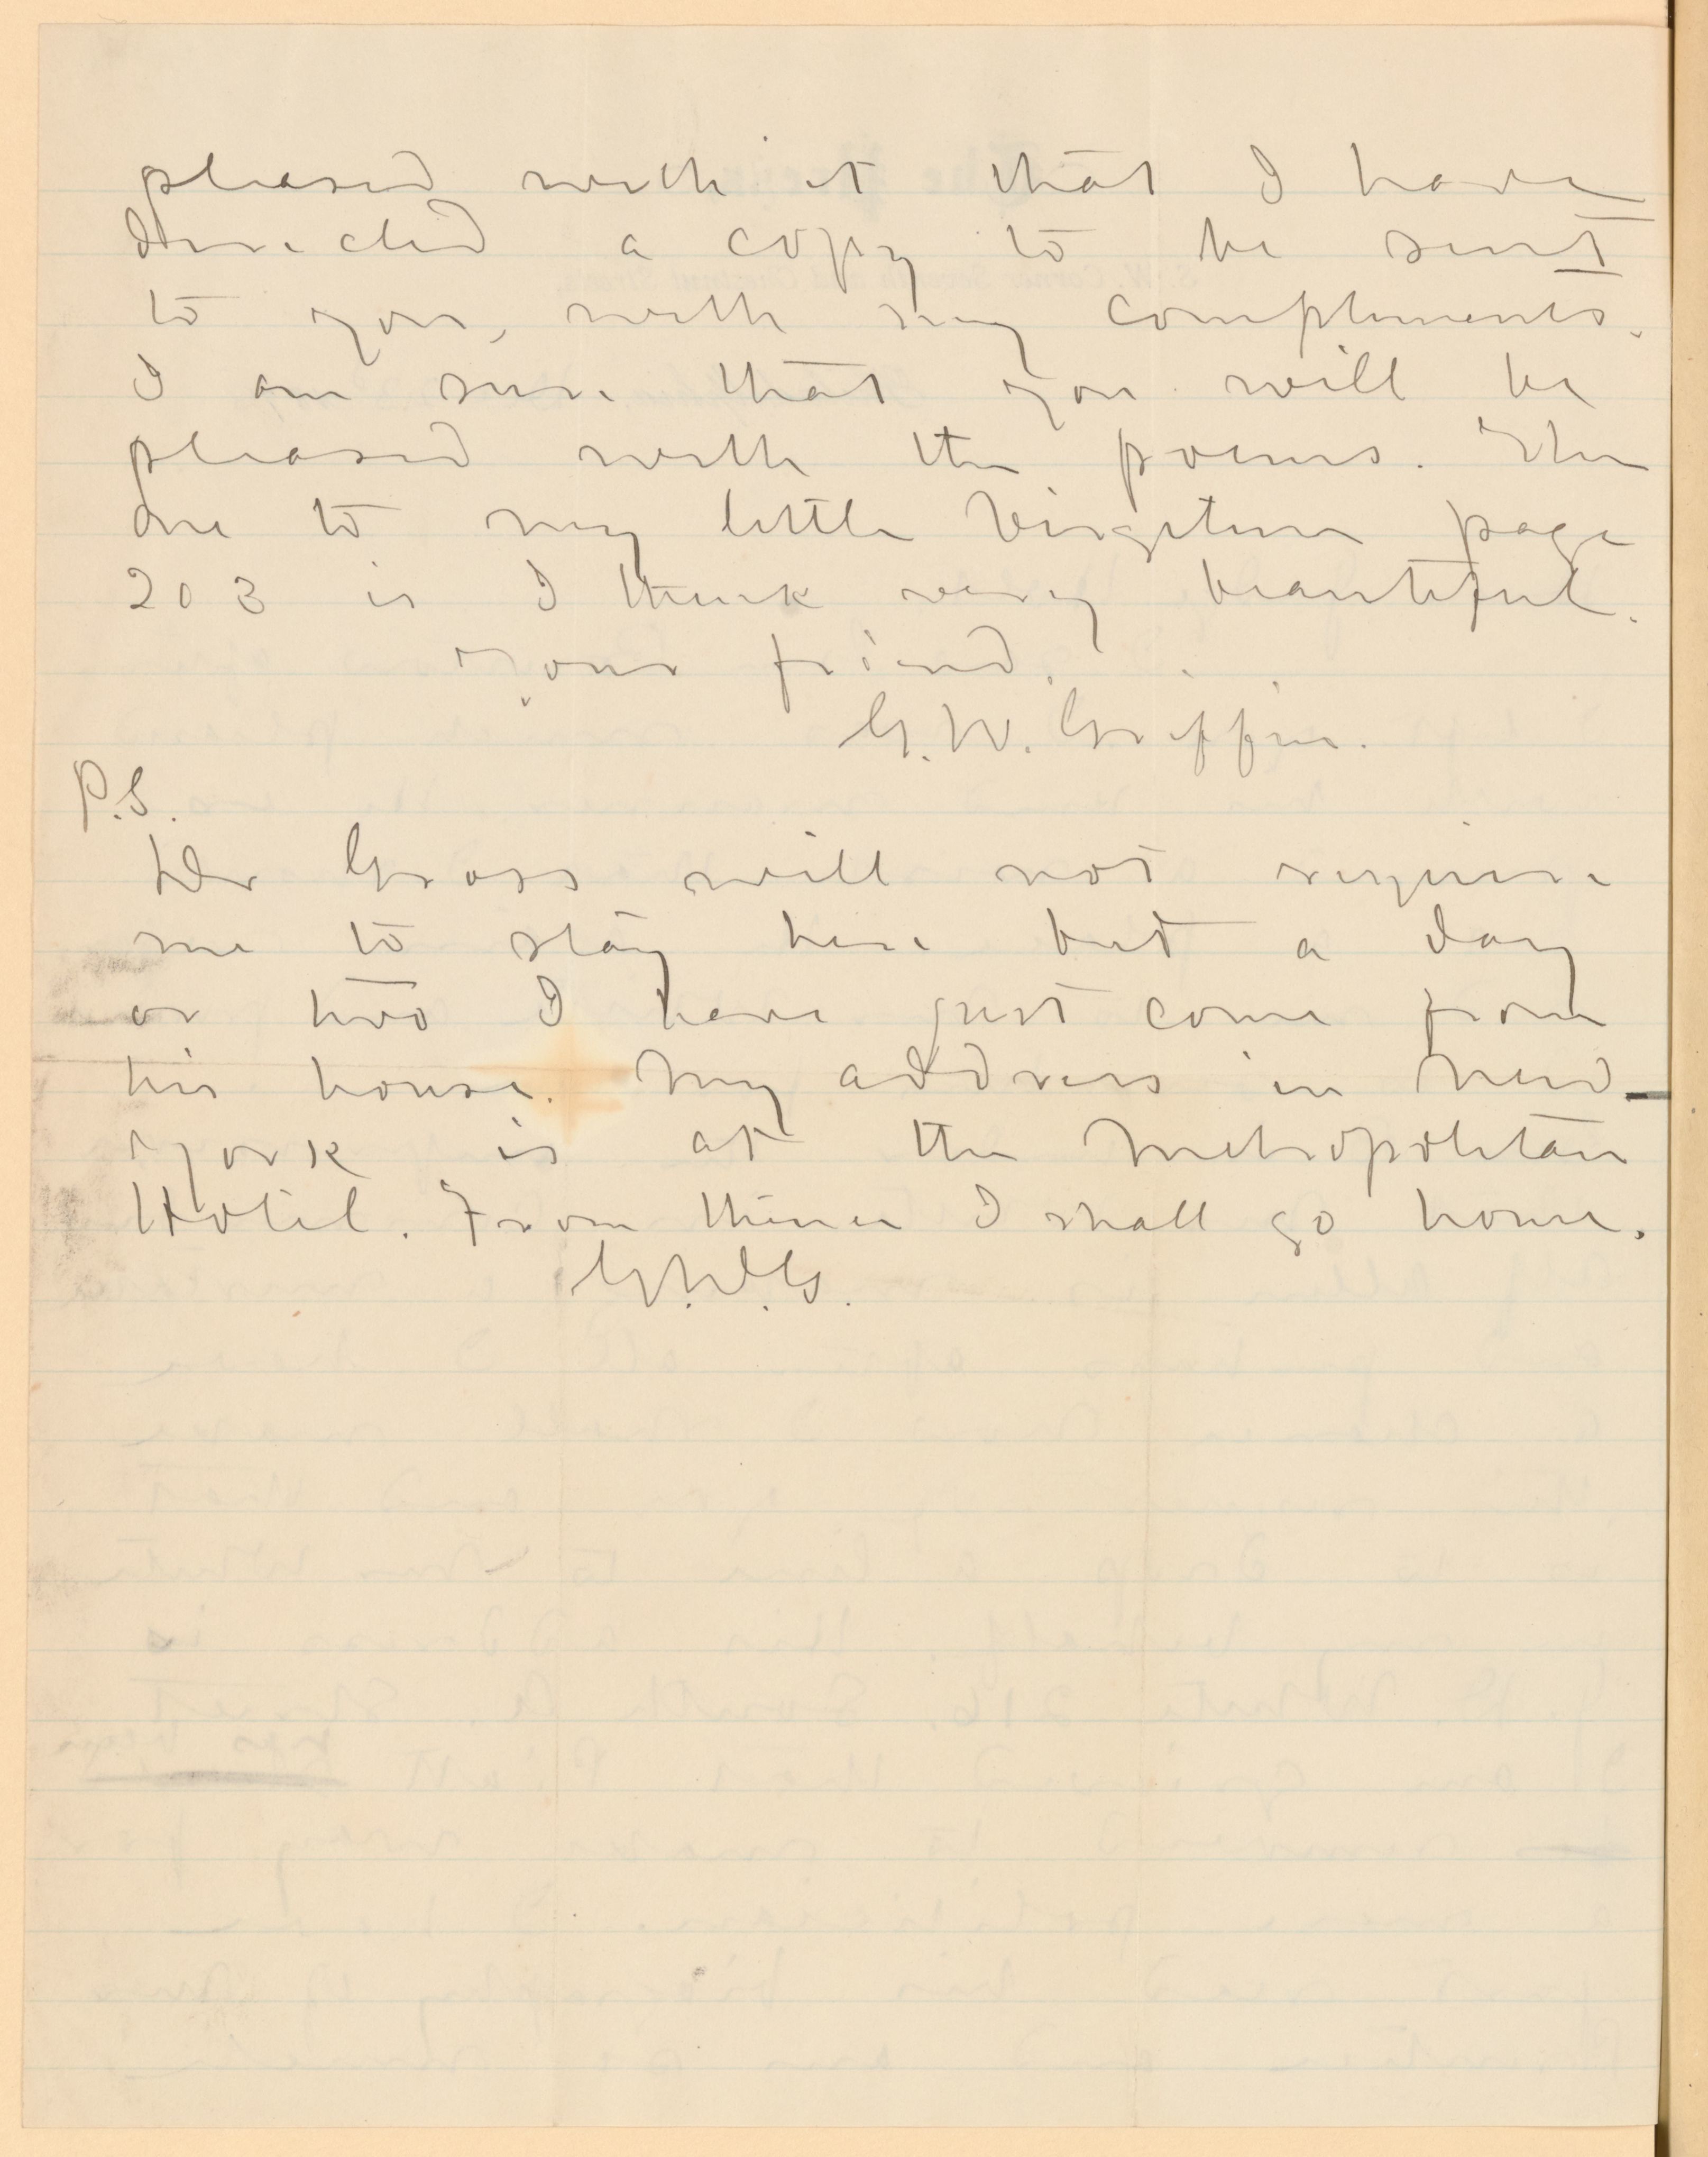 pleased with it that I have
directed a copy to be sent
to you, with my compliments.
I am sure that you will be
pleased with the poems. The
one to my little Virginia page
203 is I think very beautiful.
Your friend,
G.W. Griffin.
P.S.
Dr Gross will not require
me to stay here but a day
or two I have just come from
his house. My address in New
York is at the Metropolitan
Hotel. From thence I shall go home.
G.W.G.